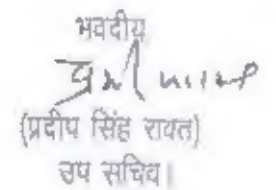 भवदीय
(प्रदीप सिंह रावत)
उप सचिव।